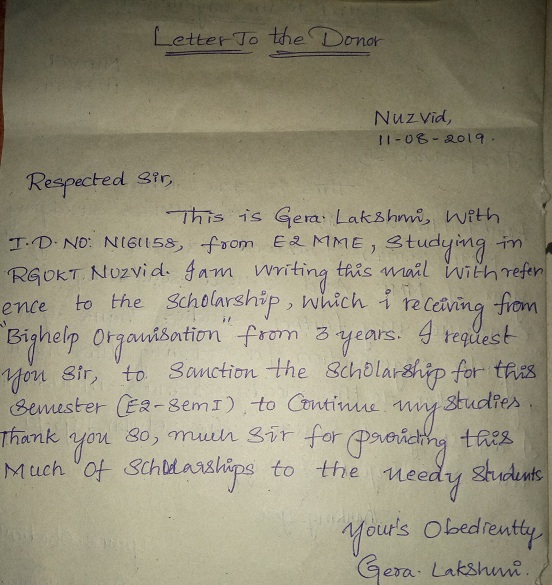 Letter To the Donor
Nuzvid,
11-08-2019.
Respected Sir,
This is Gera. Lakshmi, With
I.D.NO: N161158, from E2 MME, Studying in
RGUKT Nuzvid. I am writing this mail with refer
ence to the Scholarship, which i receiving from
"Bighelp Organisation" from 3 years. I request
you Sir, to Sanction the Scholarship for this
Semester (E2-Sem I), to Continue my studies.
Thank you so, much Sir for providing this
Much Of Scholarships to the needy students
Your's Obediently
Gera. Lakshmi.